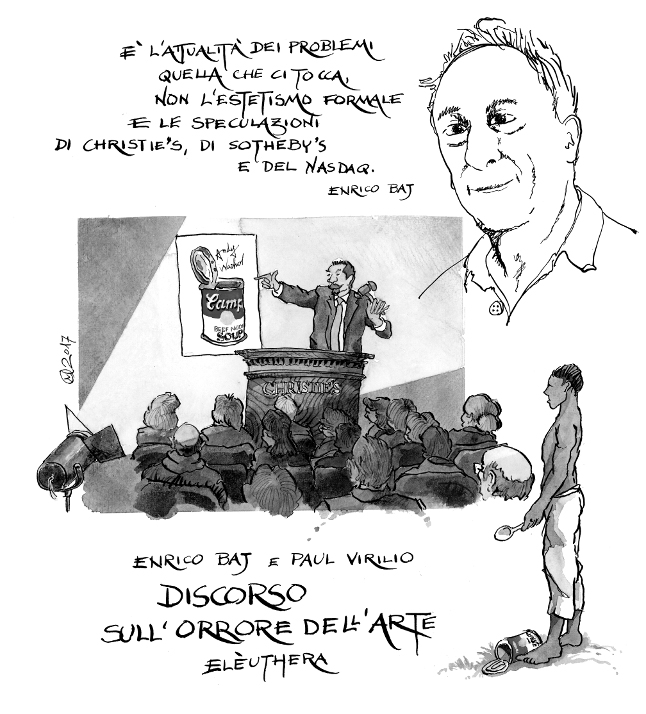 E' L'ATTUALITÀ DEI PROBLEMI
QUELLA CHE CI TOCCA,
NON L'ESTETISMO FORMALE
E LE SPECULAZIONI
DI CHRISTIE'S, DI SOTHEBY'S
E DEL NASDAQ.
ENRICO BAJ
Andy
Warhol
Camp
BEEF NOOD
SOUP
CHRISTIE'S
2017
ENRICO BAJ E PAUL VIRILIO
DISCORSO
SULL'ORRORE DELL'ARTE
ELÈUTHERA